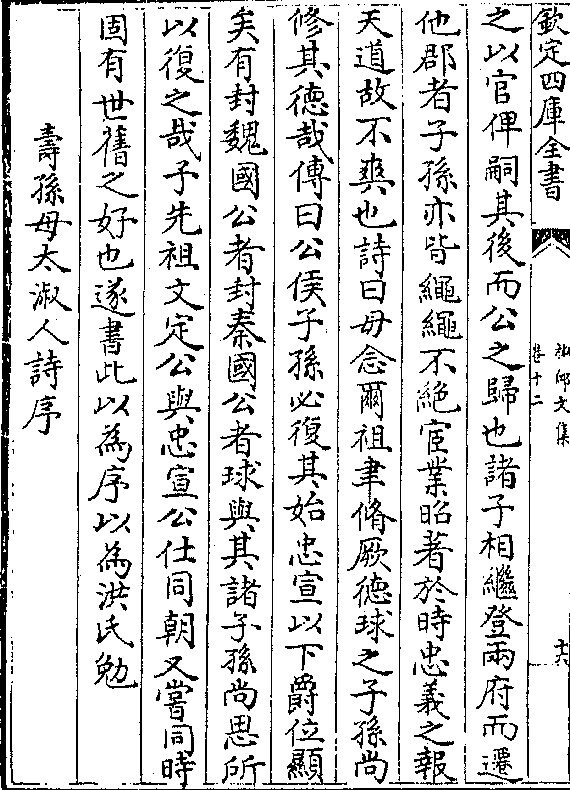 欽定四庫全書
卷十二
之以官俾嗣其後而公之歸也諸子相繼登兩府而遷
他郡者子孫亦皆繩繩不絶宦業昭著於時忠義之報
天道故不爽也詩曰毋念爾祖聿脩厥德球之子孫尚
修其德哉傳曰公侯子孫必復其始忠宣以下爵位顯
矣有封魏國公者封秦國公者球與其諸子孫尚思所
以復之哉予先祖文定公與忠宣公仕同朝又嘗同時
固有世舊之好也遂書此以為序以為洪氏勉
壽孫母太淑人詩序